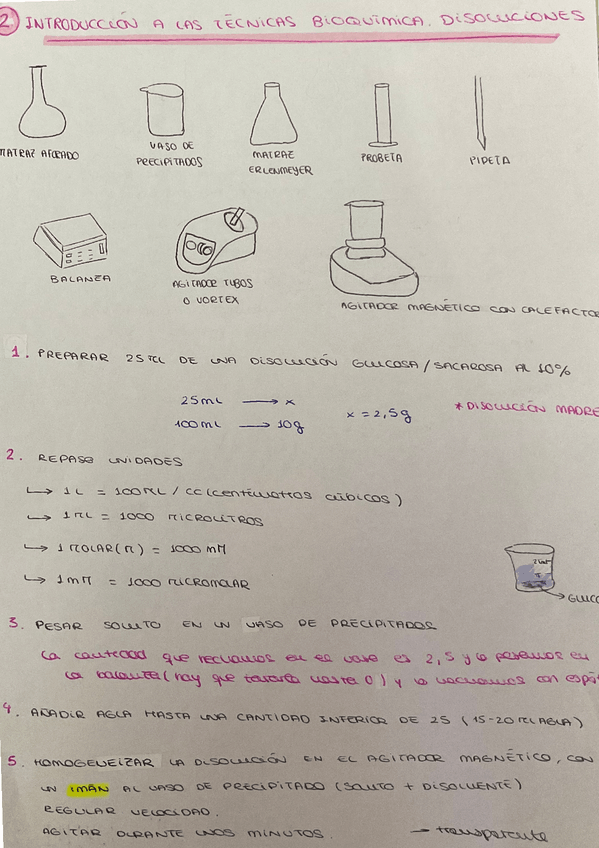 2. INTRODUCCIÓN A LAS TÉCNICAS BIOQUÍMICA. DISOLUCIONES
MATRAZ AFORADO
VASO DE
PRECIPITADOS
MATRAZ
ERLENMEYER
PROBETA
PIPETA
BALANZA
AGITADOR TUBOS
O VORTEX
AGITADOR MAGNÉTICO CON CALEFACTOR
1. PREPARAR 25ML DE UNA DISOLUCIÓN GLUCOSA/SACAROSA AL 10%
25mL → x
100mL → 10g
x = 2,5g
* DISOLUCIÓN MADRE
2. REPASO UNIDADES
↳ 1L = 100ML / CC (centímetros cúbicos)
↳ 1ML = 1000 MICROLITROS
↳ 1 MOLAR(M) = 1000 mM
↳ 1mM = 1000 MICROMOLAR
→ GLUCO
3. PESAR SOLUTO EN UN VASO DE PRECIPITADOS
La cantidad que rechamos en el vaso es 2,5 y lo pesamos en
la balanza (hay que tararla hasta 0) y lo vachamos con espá
4. AÑADIR AGUA HASTA UNA CANTIDAD INFERIOR DE 25 (15-20 ML AGUA)
5. HOMOGENEIZAR LA DISOLUCIÓN EN EL AGITADOR MAGNÉTICO, CON
UN IMÁN AL VASO DE PRECIPITADO (SOLUTO + DISOLVENTE)
REGULAR VELOCIDAD.
AGITAR DURANTE UNOS MINUTOS. → transparente